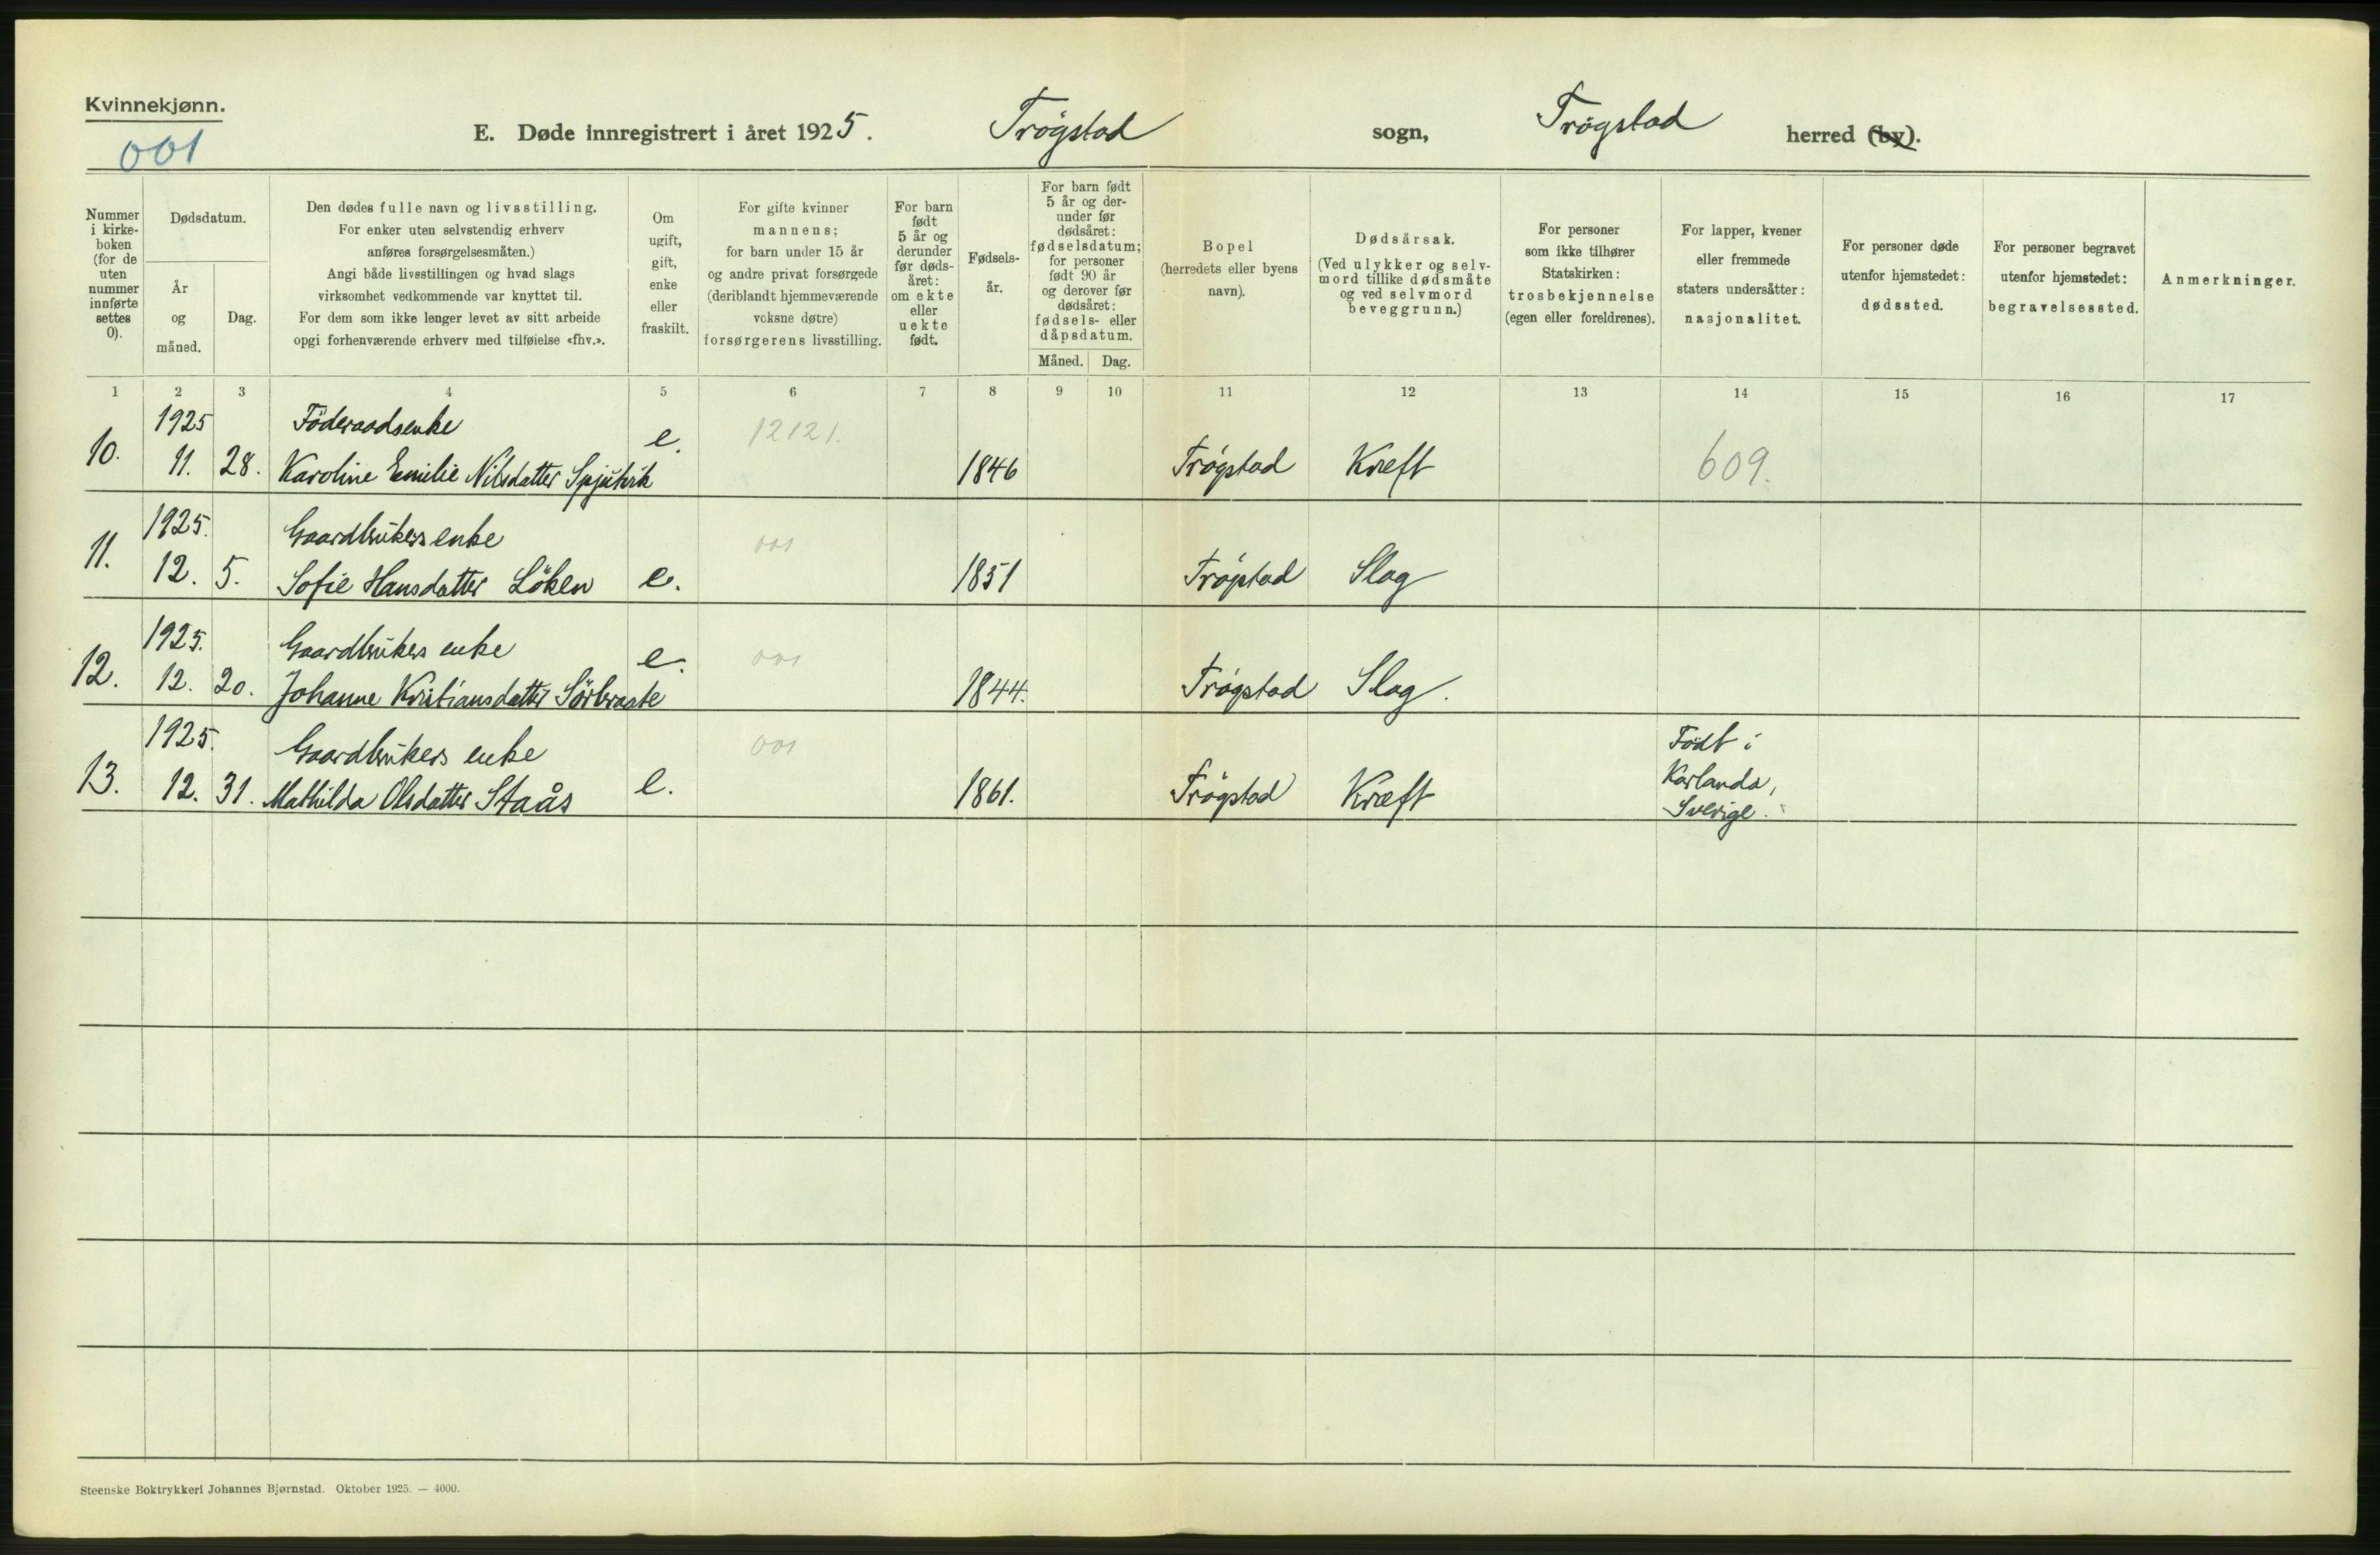 Kvinnekjønn.
001
E. Døde innregistrert i året 1925. Trögstad sogn, Trögstad herred (by).
Nummer i kirke- boken (for de uten nummer innførte settes 0).
Dødsdatum.
År og måned.
Dag.
Den dødes fulle navn og livsstilling.
For enker uten selvstendig erhverv
anføres forsørgelsesmåten.)
Angi både livsstillingen og hvad slags
virksomhet vedkommende var knyttet til.
For dem som ikke lenger levet av sitt arbeide
opgi forhenværende erhverv med tilføielse «fhv.».
Om ugift, gift, enke eller fraskilt.
For gifte kvinner
mannens;
for barn under 15 år
og andre privat forsørgede
(deriblandt hjemmeværende
voksne døtre)
forsørgerens livsstilling.
For barn født 5 år og derunder før døds- året: om ekte eller uekte født.
Fødsels- år.
For barn født 5 år og der- under før dødsåret: fødselsdatum; for personer født 90 år og derover før dødsåret: fødsels- eller dåpsdatum.
Måned. Dag.
Bopel
(herredets eller byens
navn).
Dødsårsak.
(Ved ulykker og selv-
mord tillike dødsmåte
og ved selvmord
beveggrunn.)
For personer
som ikke tilhører
Statskirken:
trosbekjennelse
(egen eller foreldrenes).
For lapper, kvener
eller fremmede
staters undersåtter:
nasjonalitet.
For personer døde
utenfor hjemstedet:
dødssted.
For personer begravet
utenfor hjemstedet:
begravelsessted.
Anmerkninger.
1 2 3 4 5 6 7 8 9 10 11 12 13 14 15 16 17
1925 Föderaadsenke e. 12121.
10. 11. 28. Karoline Emilie Nilsdatter 1846 Trögstad Kreft 609.
1925. Gaardbrukers enke 001
11. 12. 5. Sofie Hansdatter Löken e. 1851 Trögstad Slag
1925. Gaardbrukers enke e. 001
12. 12. 20. Johanne Kristiansdatter Sörbraate 1844. Trögstad Slag.
1925. Gaardbrukers enke 001 Födt i
13. 12. 31. Mathilda Olsdatter Staås e. 1861. Trögstad Kreft Karlanda,
Sverige.
Steenske Boktrykkeri Johannes Bjørnstad. Oktober 1925. — 4000.